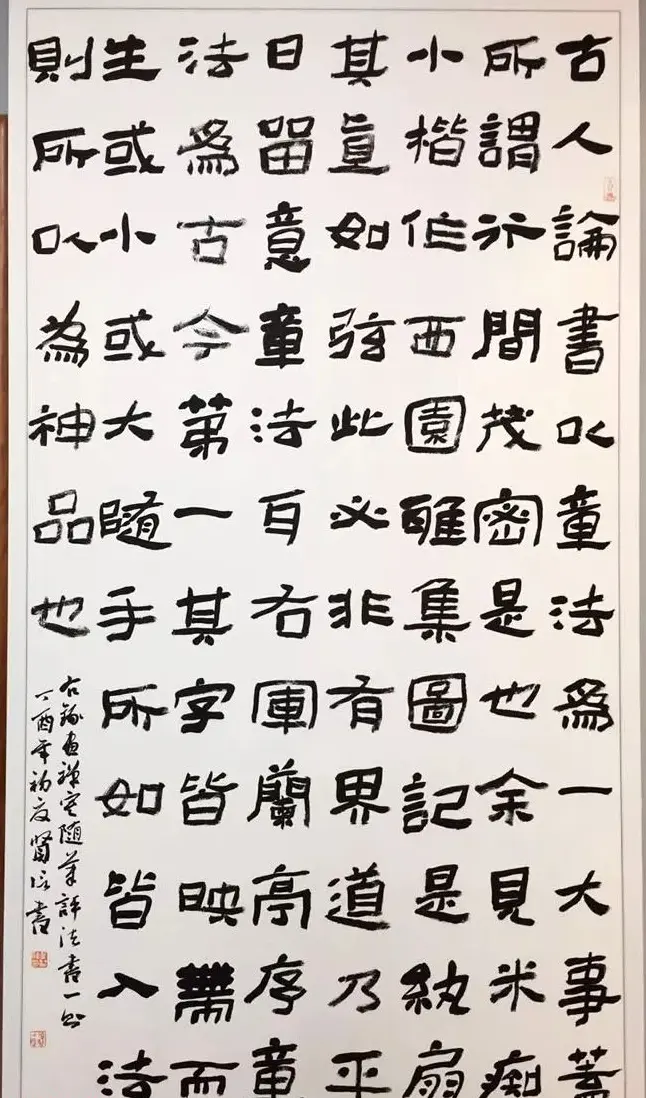 古人論書以章法爲一大事蓋
所謂行間茂密是也余見米癡
小楷作西園雅集圖記是紈扇
其直如弦此必非有界道乃平
日留意章法耳右軍蘭亭序章
法爲古今第一其字皆映帶而
生或小或大隨手所如皆入法
則所以為神品也
右錄畫禪室隨筆評法書一則
丁酉年初夏賢信書